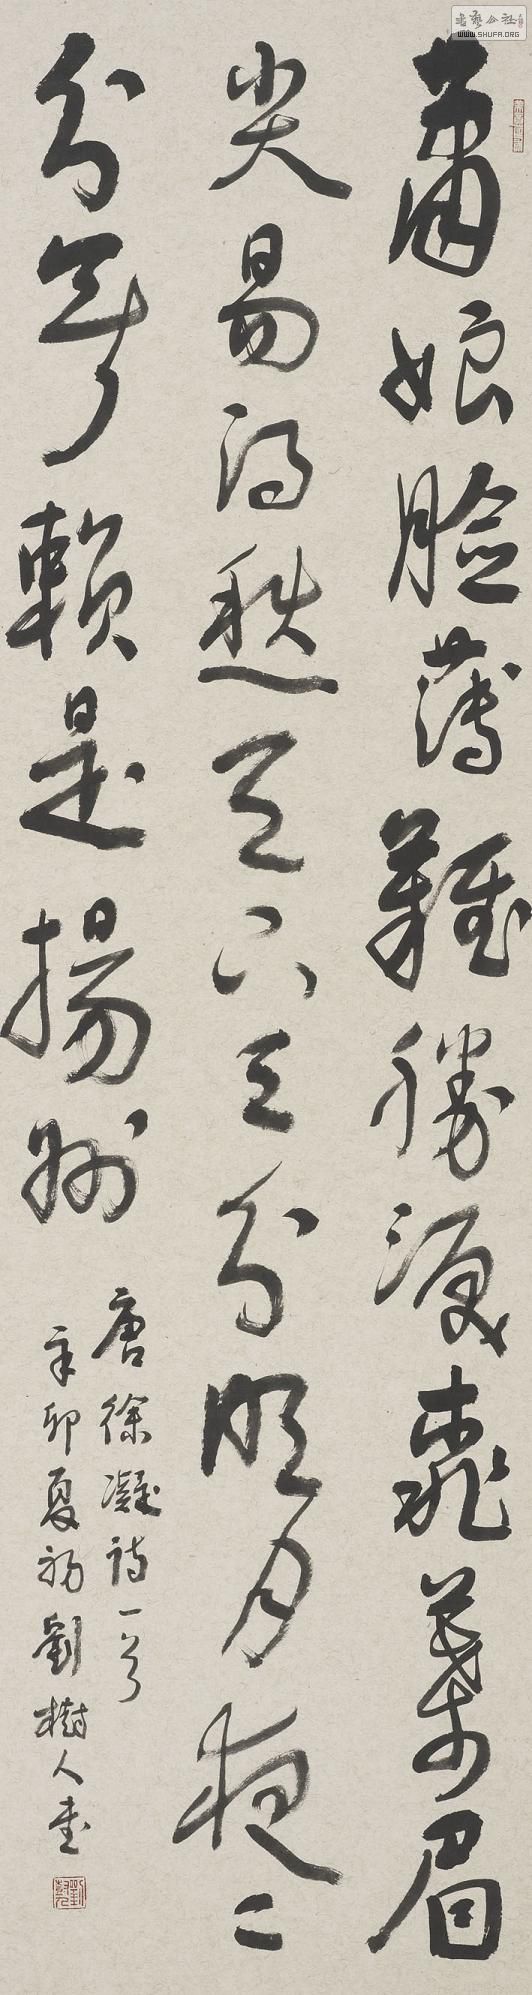 蕭娘臉薄難勝淚桃葉眉
尖易得愁天下三分明月夜二
分無賴是揚州
唐徐凝詩一首
辛卯夏初劉樹人書
書藝公社
WWW.SHUFA.ORG